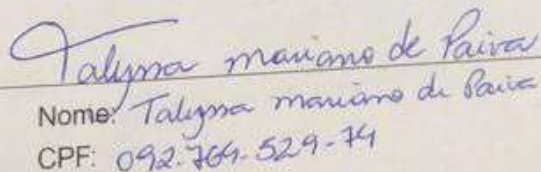 Talyssa mariano de Paiva
Nome: Talyssa mariano de Paiva
CPF: 092.764.529-74